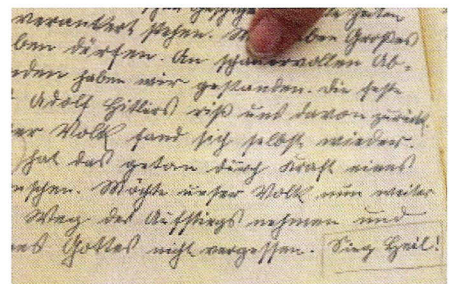 die Zeiten
verankert stehen. Wir haben Großes
ben dürfen. An schauervollen Ab-
nden haben wir gestanden. Die feste
Adolf Hitlers riß uns davon zurück.
er Volk fand sich selbst wieder.
hat das getan durch Kraft eines
nschen. Möchte unser Volk nun weiter
Weg des Aufstiegs nehmen und
nes Gottes nicht vergessen. Sieg Heil!